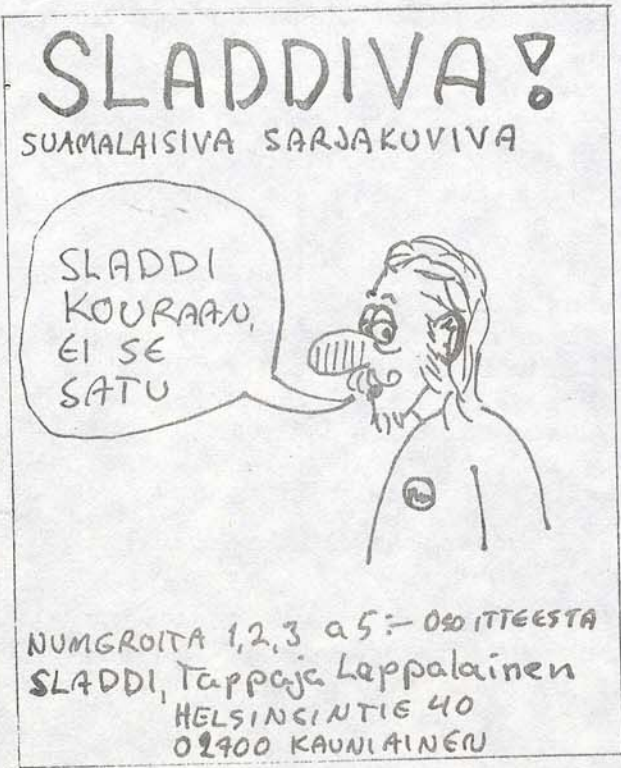 SLADDIVA!
SUAMALAISIVA SARJAKUVIVA
SLADDI
KOURAAN,
EI SE
SATU
NUMEROITA 1,2,3 a 5:- OSOITTEESTA
SLADDI, Tappaja Lappalainen
HELSINGINTIE 40
02700 KAUNIAINEN